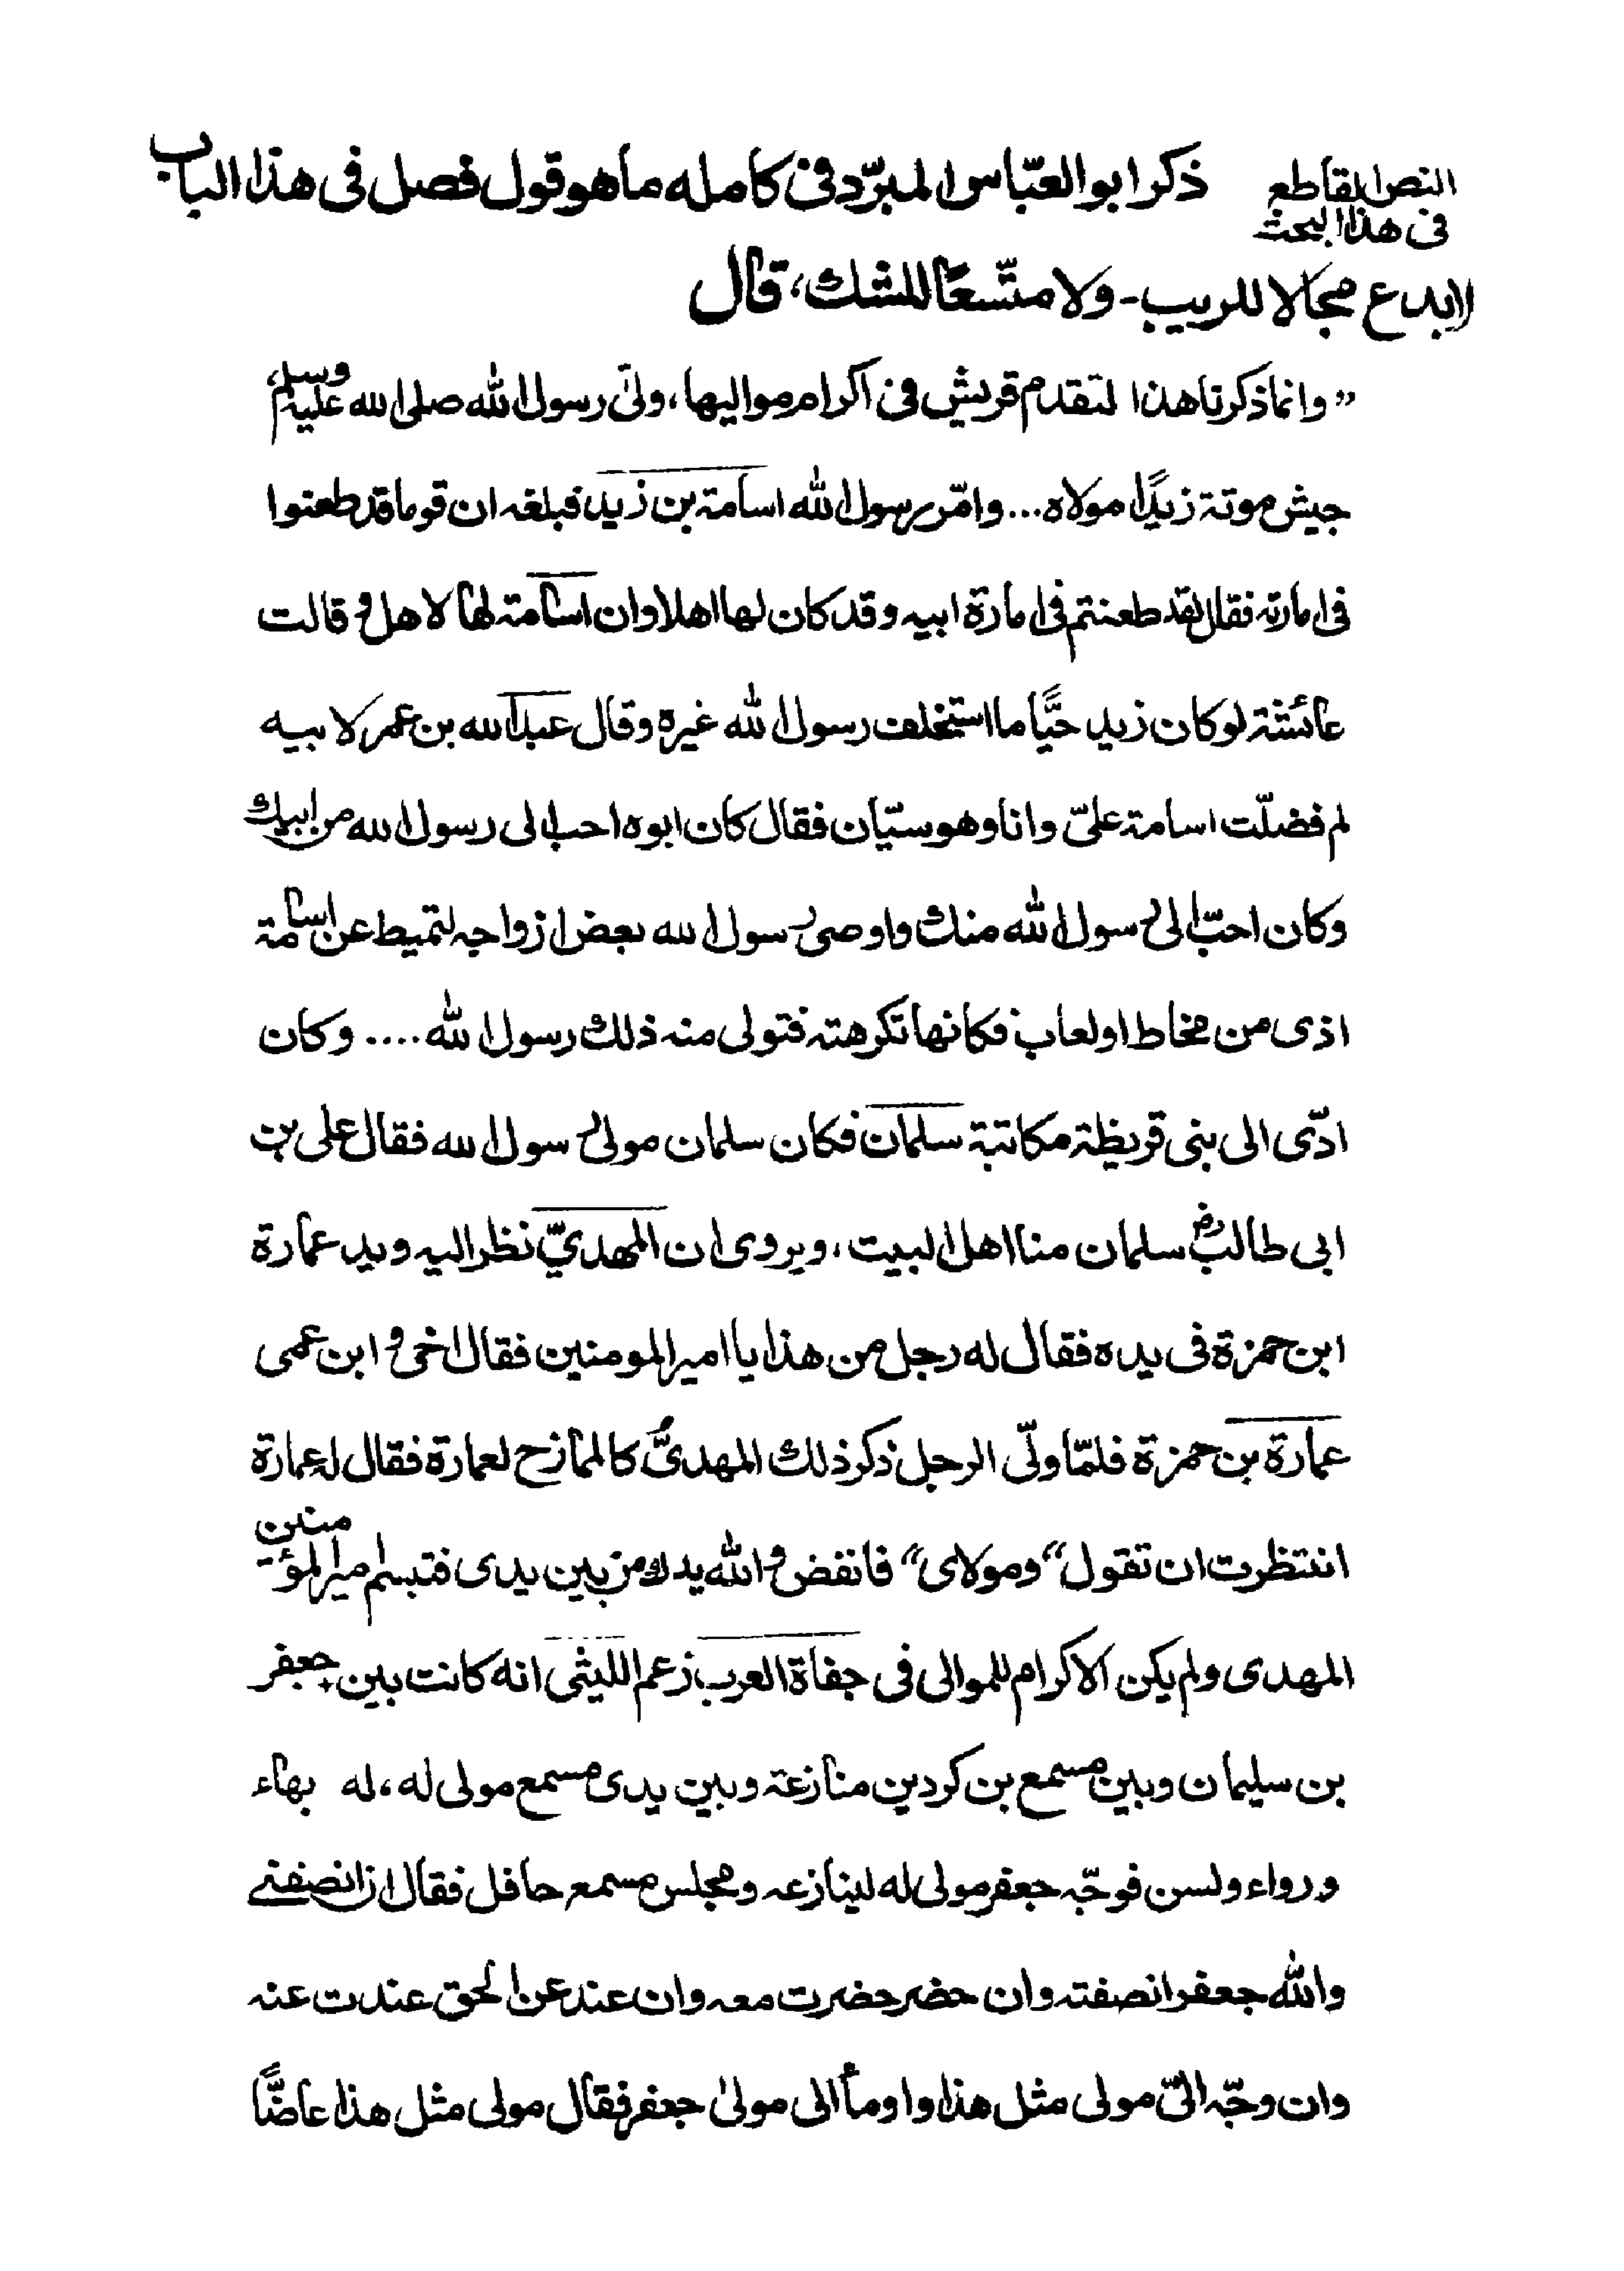 النص القاطع
فى هذا البحث
ذكر ابو العبّاس المبرّد فى كامله ما هو قول فصل فى هذا الباب
لا يدع مجالا للريب - ولا متّسعًا للشك، قال
”وانما ذكرنا هذا لتقدم قريش فى اكرام مواليها، ولّى رسول الله صلى الله عليه وسلم
جيش موتة زيدًا مولاه... وامّر رسول الله اسامة بن زيد فبلغه ان قوما قد طعنوا
فى امارته فقال لقد طعنتم فى امارة ابيه وقد كان لها اهلا وان اسامة لها لاهل و قالت
عائشة لو كان زيد حيًّا ما استخلف رسول الله غيره وقال عبد الله بن عمر لابيه
لم فضلّت اسامة علىّ وانا وهو سيّان فقال كان ابوه احب الى رسول الله من ابيك
وكان احبّ الى رسول الله منك واوصى رسول الله بعض ازواجه لتميط عن اسامة
اذى من مخاط او لعاب فكانها تكرهته فتولى منه ذلك رسول الله .... وكان
ادّى الى بنى قريظة مكاتبة سلمان فكان سلمان مولى رسول الله فقال على بن
ابى طالبؓ سلمان منا اهل البيت، ويروى ان المهديّ نظر اليه ويد عمارة
ابن حمزة فى يده فقال له رجل من هذا يا امير المومنين فقال اخى و ابن عمى
عمارة بن حمزة فلمّا ولّى الرجل ذكر ذلك المهدىُّ كالممازح لعمارة فقال له عمارة
انتظرت ان تقول ”ومولاى“ فانفض والله يدك من بين يدى فتبسم امير المؤمنين
المهدى ولم يكن الاكرام للموالى فى جفاة العرب زعم الليثى انه كانت بين جعفر
بن سليمان وبين مسمع بن كردين منازعة وبين يدى مسمع مولى له، له بهاء
ورواء ولسن فوجّه جعفر مولى له لينازعه ومجلس مسمع حافل فقال ان انصفنى
والله جعفر انصفته وان حضر حضرت معه وان عند عن الحق عندت عنه
وان وجّه الىّ مولى مثل هذا واومأ الى مولىٰ جعفر فقال مولى مثل هذا عاضًّا